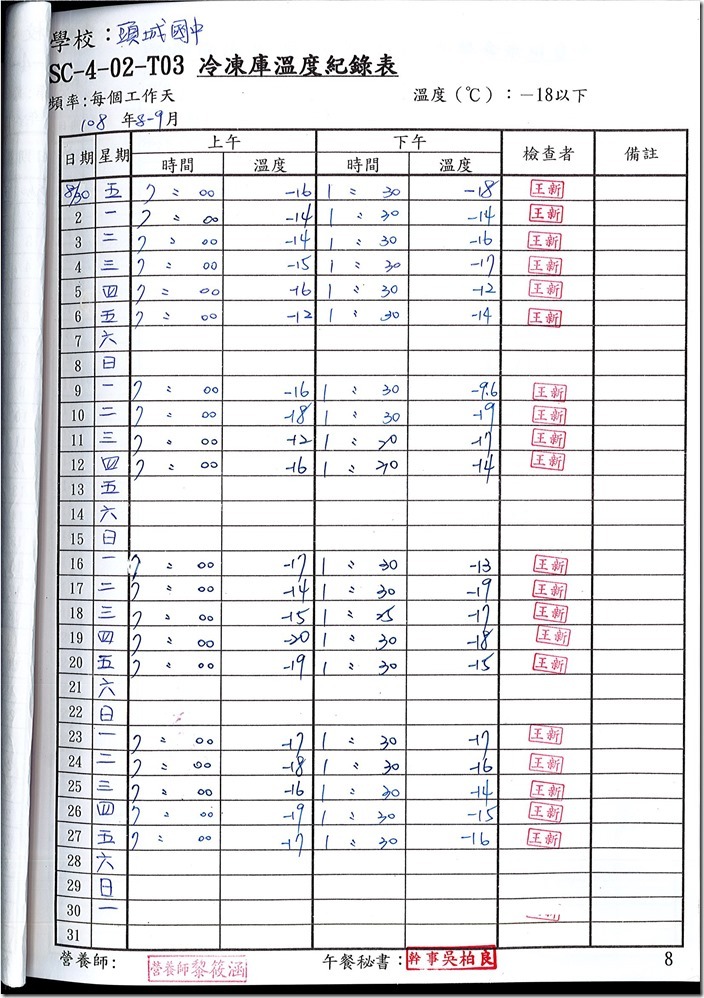 學校：頭城國中
SC-4-02-T03 冷凍庫溫度紀錄表
頻率：每個工作天 溫度（℃）：－18以下
108 年8-9月
日期 星期 上午 下午 檢查者 備註
時間 溫度 時間 溫度
8/30 五 7：00 -16 1：30 -18 王新
2 一 7：00 -14 1：30 -14 王新
3 二 7：00 -14 1：30 -16 王新
4 三 7：00 -15 1：30 -17 王新
5 四 7：00 -16 1：30 -12 王新
6 五 7：00 -12 1：30 -14 王新
7 六
8 日
9 一 7：00 -16 1：30 -9.6 王新
10 二 7：00 -18 1：30 -19 王新
11 三 7：00 -12 1：20 -17 王新
12 四 7：00 -16 1：20 -14 王新
13 五
14 六
15 日
16 一 7：00 -17 1：30 -13 王新
17 二 7：00 -14 1：30 -19 王新
18 三 7：00 -15 1：25 -17 王新
19 四 7：00 -20 1：30 -18 王新
20 五 7：00 -19 1：30 -15 王新
21 六
22 日
23 一 7：00 -17 1：30 -17 王新
24 二 7：00 -18 1：30 -16 王新
25 三 7：00 -16 1：30 -14 王新
26 四 7：00 -19 1：30 -15 王新
27 五 7：00 -17 1：30 -16 王新
28 六
29 日
30 一
31
營養師： 營養師黎筱涵 午餐秘書： 幹事吳柏良 8